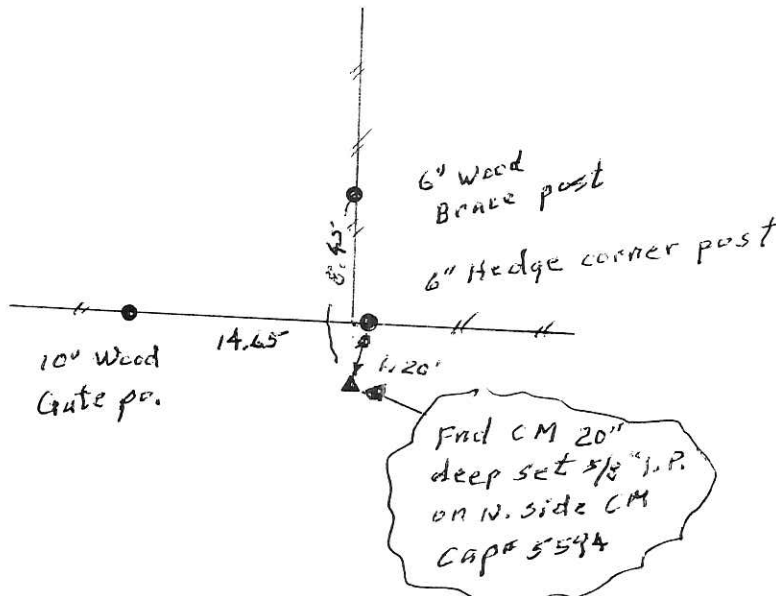 6" Wood
Brace post
8.45'
6" Hedge corner post
14.65
1.20'
10" Wood
Gate po.
Fnd CM 20"
deep set 5/8" I.P.
on N. side CM
Cap# 5594